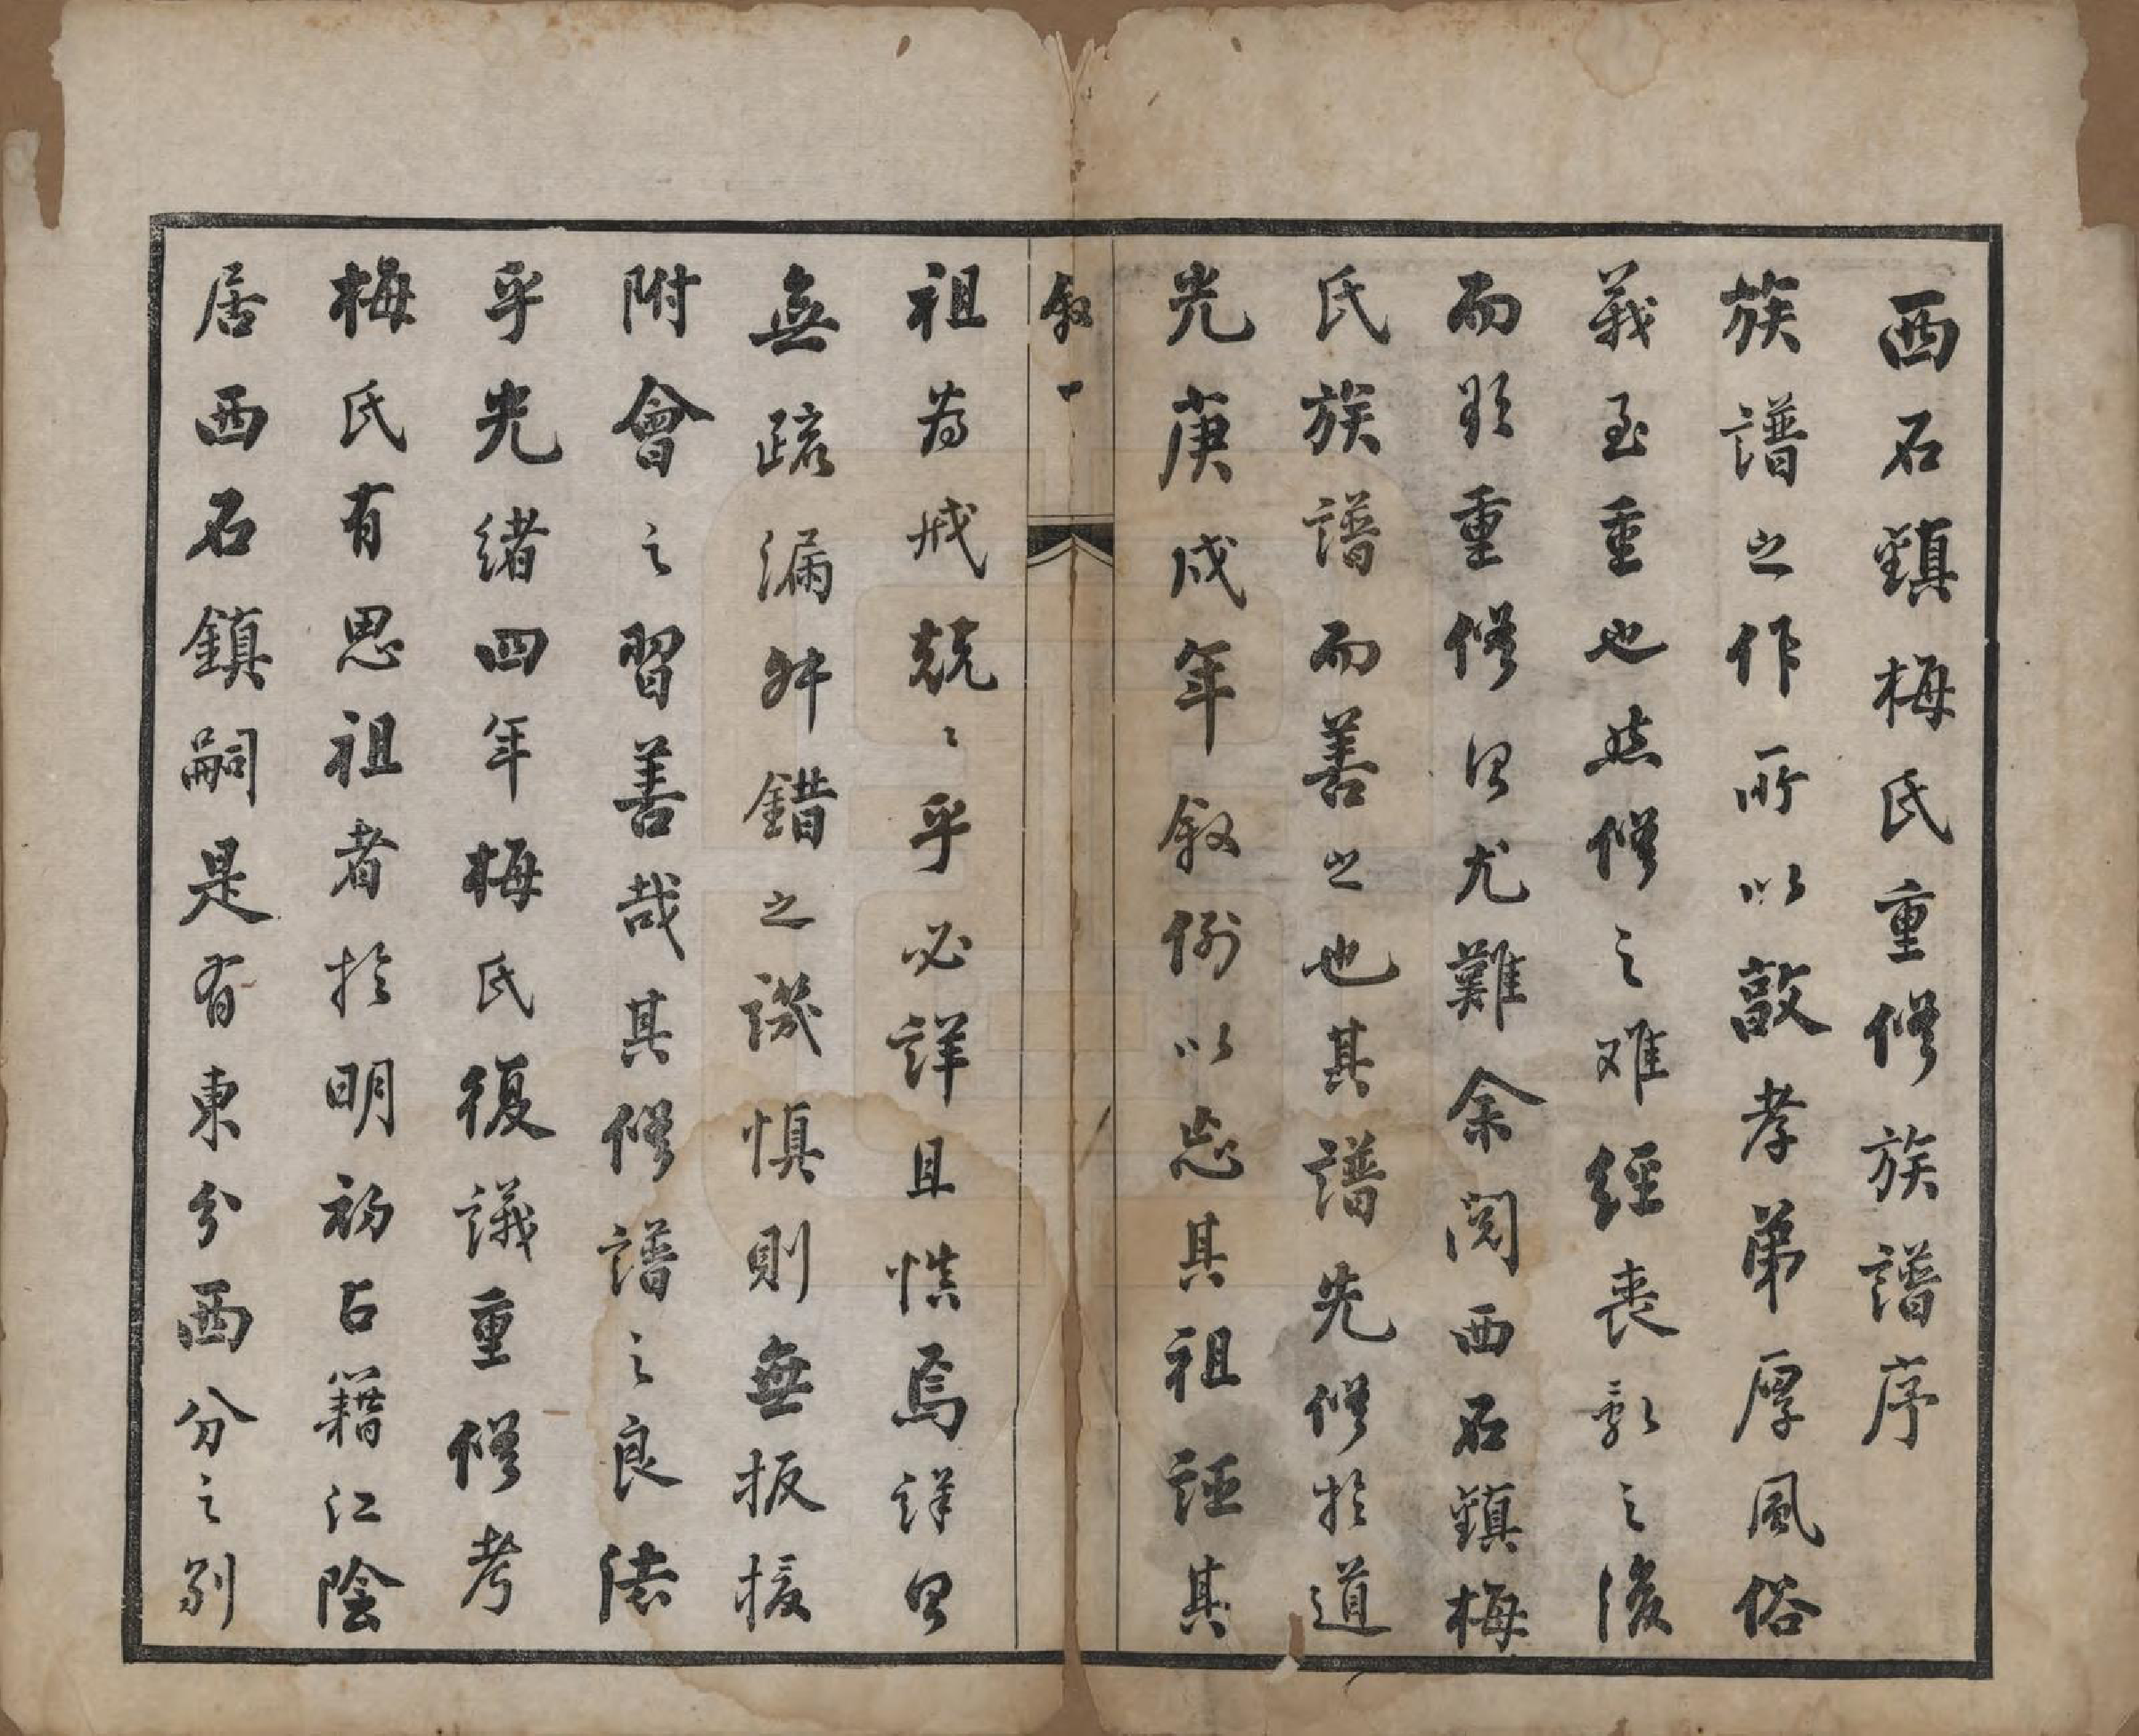 西石鎮梅氏重修族譜序
族譜之作所以敦孝弟厚風俗
義至重也然修之难經喪亂之後
而欲重修則尤難余閱西石鎮梅
氏族譜而善之也其譜先修於道
光庚戌年叙例以忘其祖誣其
叙一
祖為戒兢〻乎必詳且慎焉詳則
無疏漏舛錯之譏慎則無扳援
附會之習善哉其修譜之良法
乎光緒四年梅氏復議重修考
梅氏有思祖者於明初占籍江陰
居西石鎮嗣是有東分西分之别